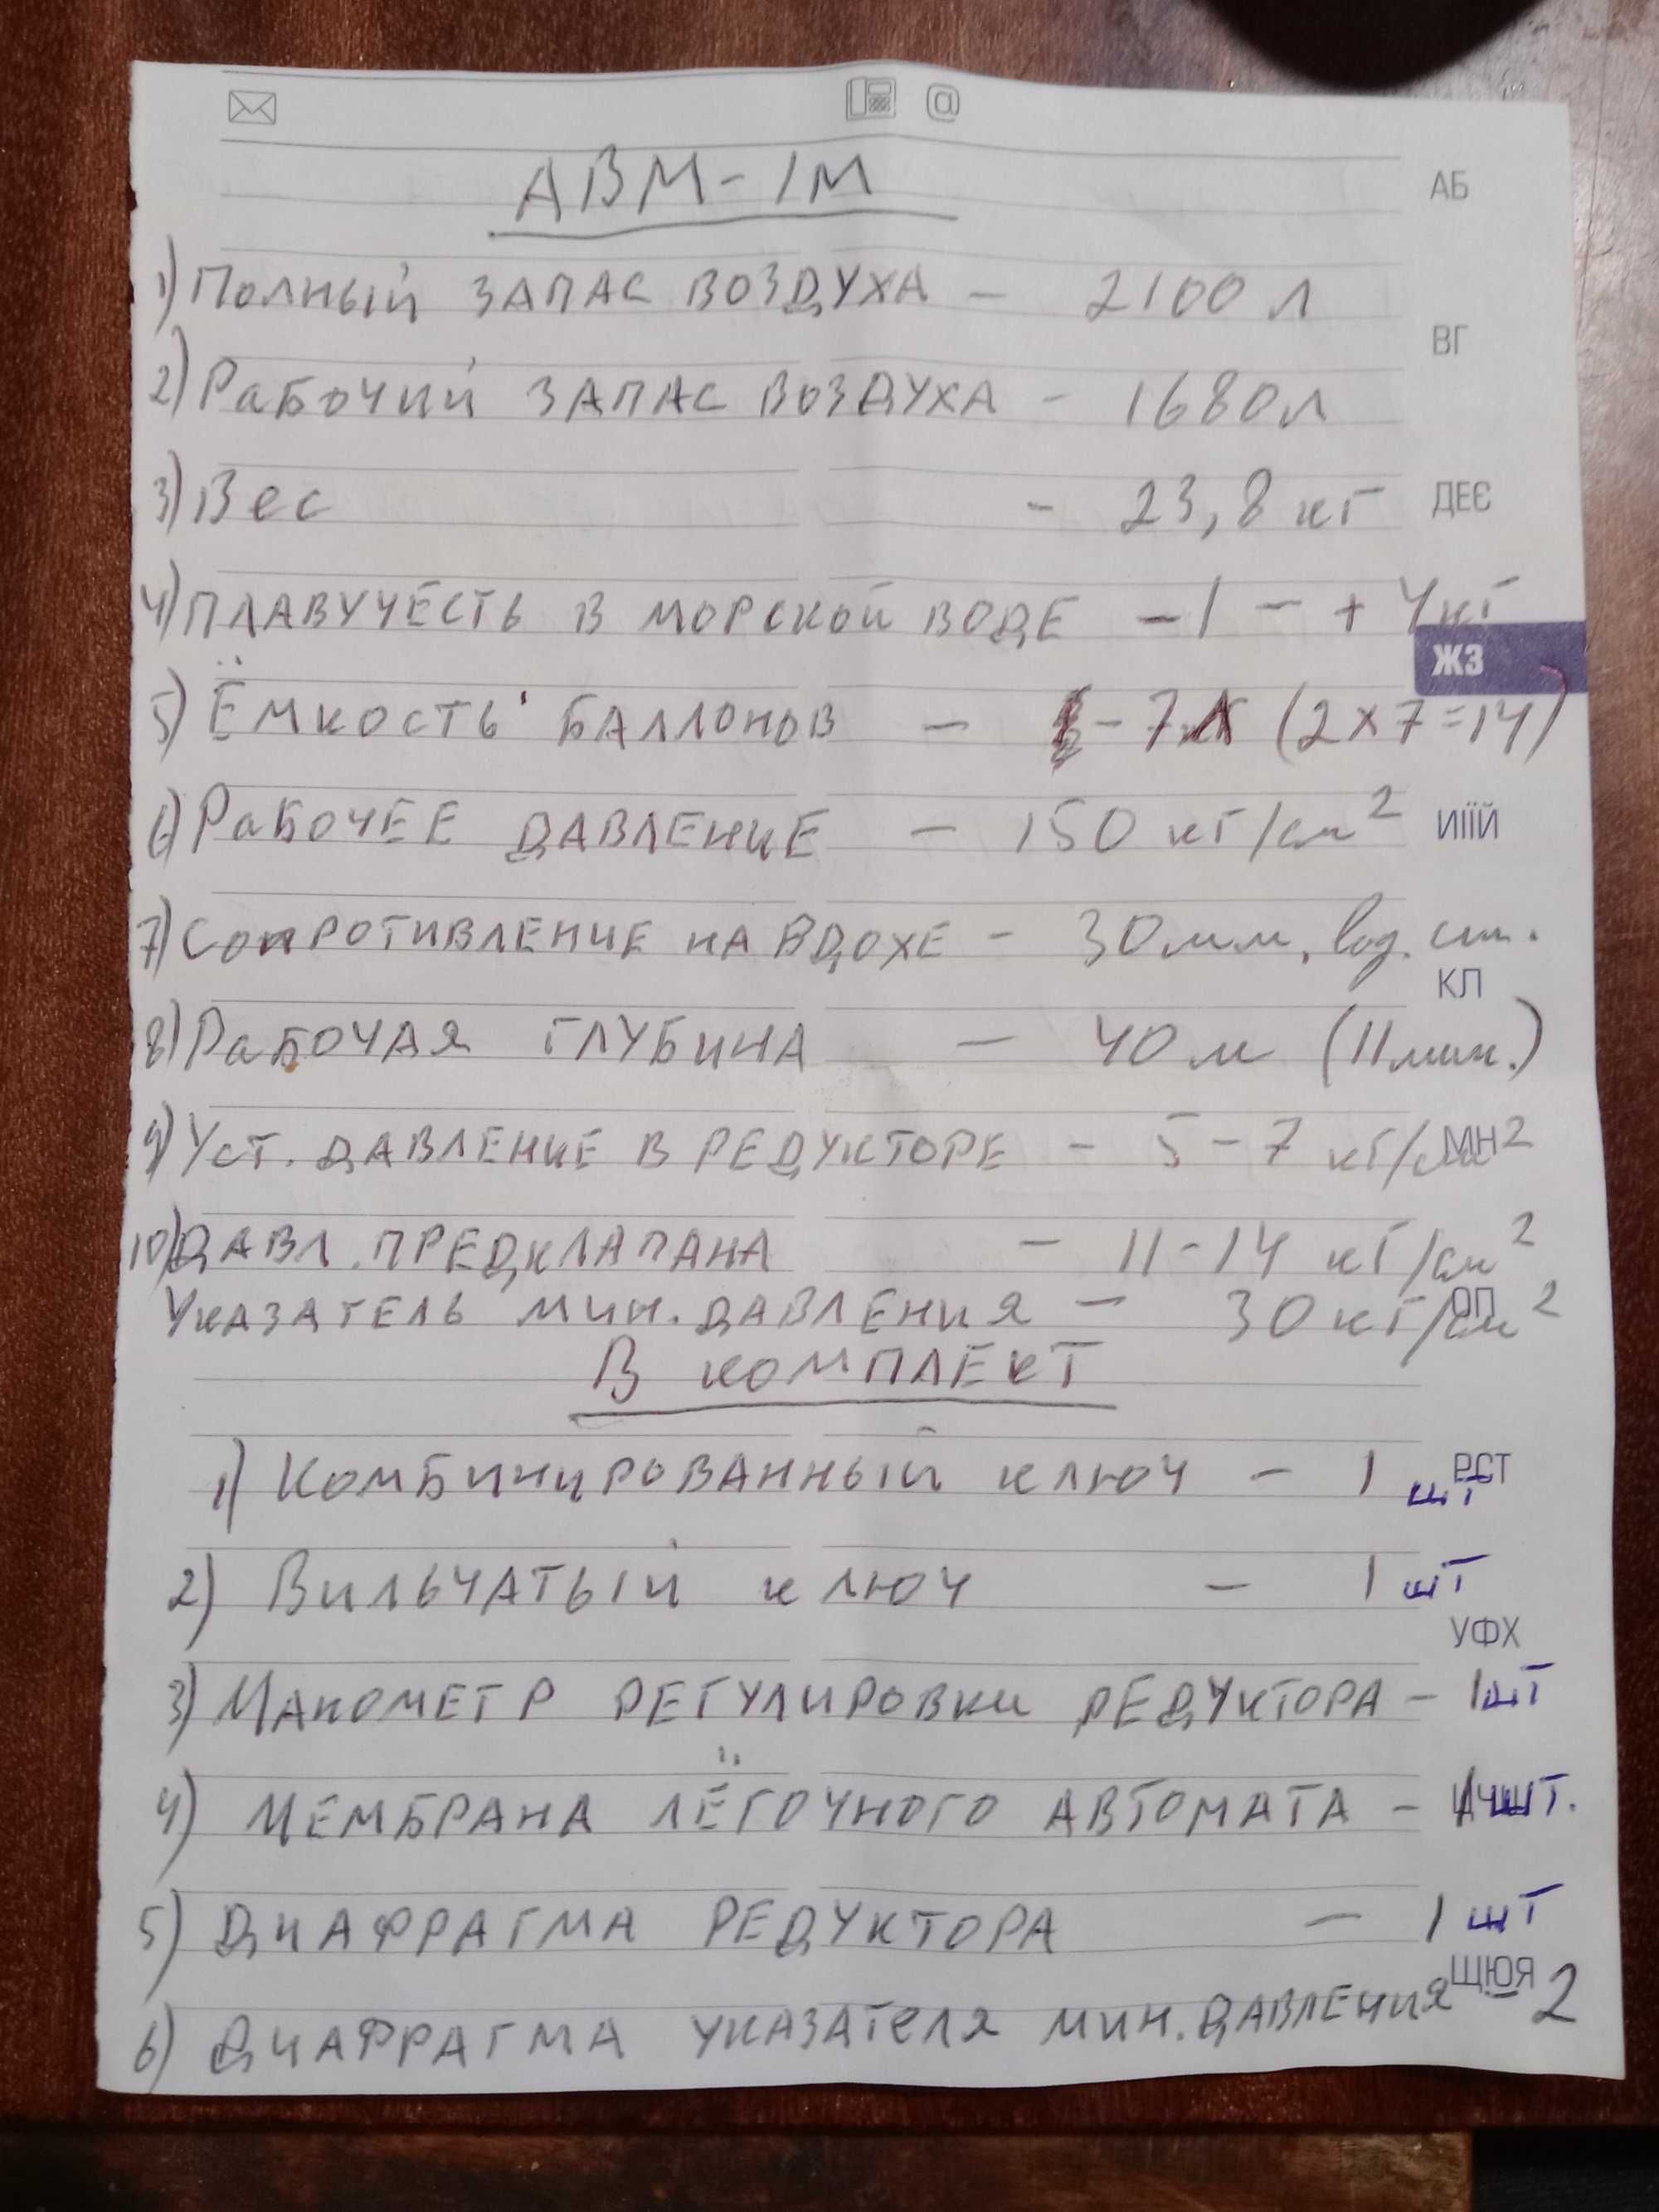 @
АВМ-1М
АБ
1) Полный запас воздуха — 2100 л
ВГ
2) Рабочий запас воздуха - 1680л
3) Вес - 23,8 кг
ДЕЄ
4) Плавучесть в морской воде -1 - + 4кг
ЖЗ
5) Ёмкость баллонов — - 7 л (2х7=14)
6) Рабочее давление — 150 кг/см²
ИІЇЙ
7) Сопротивление на вдохе - 30мм. вод. ст.
КЛ
8) Рабочая глубина — 40 м (11мин.)
9) Уст. давление в редукторе - 5-7 кг/см2
МН
10) Давл. предклапана — 11-14 кг/см2
Указатель мин. давления — 30 кг/см2
ОП
В комплект
1) Комбинированный ключ - 1 шт
РСТ
2) Вильчатый ключ — 1 шт
УФХ
3) Манометр регулировки редуктора - 1шт
4) Мембрана лёгочного автомата - шт.
5) Диафрагма редуктора — 1 шт
ЩЮЯ
6) Диафрагма указателя мин. давления - 2